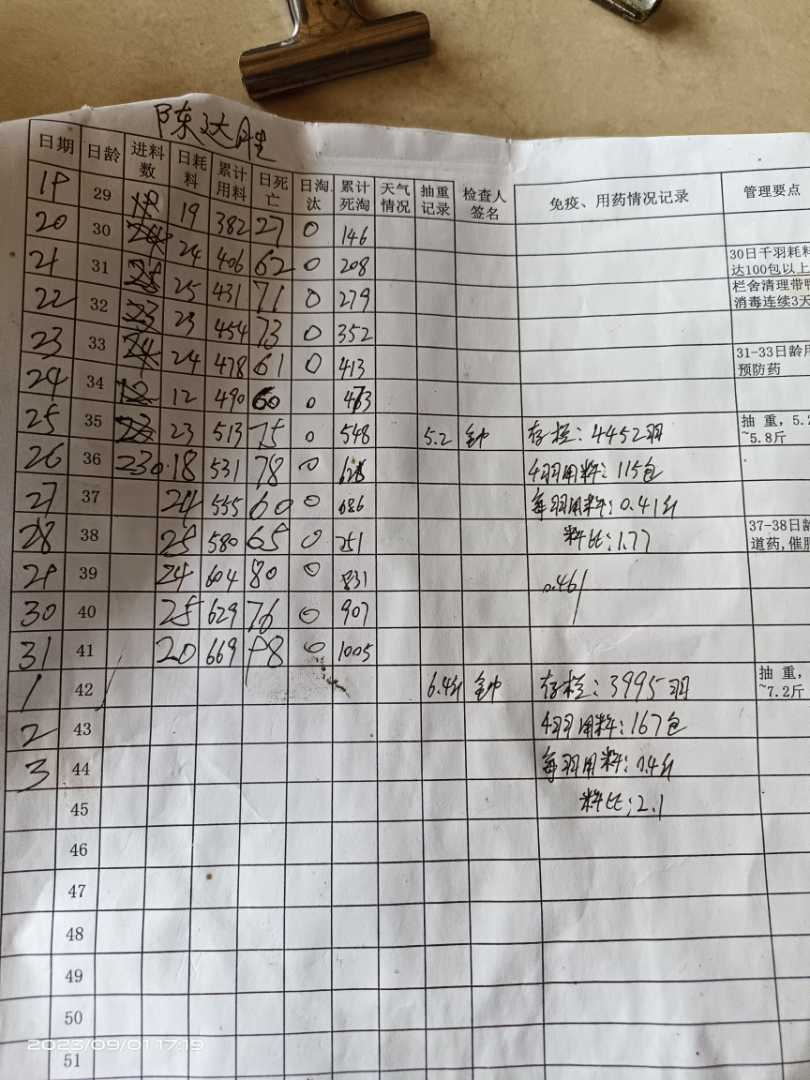 陈达胜
日期 日龄 进料数 日耗料 累计用料 日死亡 日淘汰 累计死淘 天气情况 抽重记录 检查人签名 免疫、用药情况记录 管理要点
19 29 19 19 382 27 0 146
20 30 24 24 406 62 0 208 30日千羽耗料达100包以上
21 31 25 25 431 71 0 279 栏舍清理带鸭消毒连续3天
22 32 23 23 454 73 0 352
23 33 24 24 478 61 0 413 31-33日龄用预防药
24 34 12 12 490 60 0 473
25 35 23 23 513 75 0 548 5.2 钟 存栏：4452羽 抽重，5.2~5.8斤
26 36 230 18 531 78 0 626 4羽用料：115包
27 37 24 555 60 0 686 每羽用料：0.41斤
28 38 25 580 65 0 751 料比：1.77 37-38日龄道药，催肥
29 39 24 604 80 0 831 0.461
30 40 25 629 76 0 907
31 41 20 669 98 0 1005
1 42 6.4斤 钟 存栏：3995羽 抽重，~7.2斤
2 43 4羽用料：167包
3 44 每羽用料：0.4斤
45 料比：2.1
46
47
48
49
50
51
2023/09/01 17:19